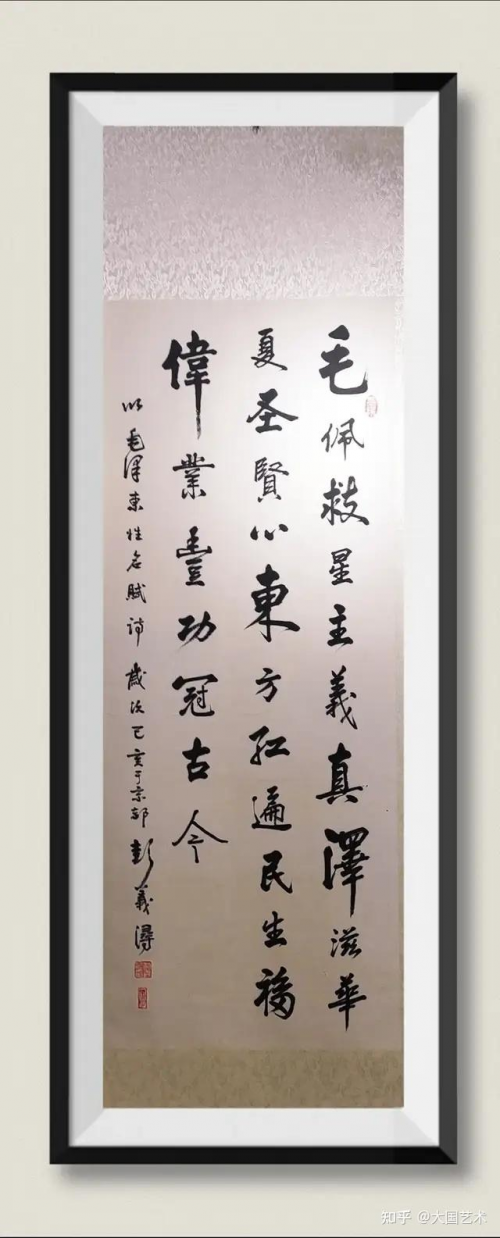 毛佩救星主義真澤滋華
夏圣賢心東方红遍民生福
偉業豐功冠古今
以毛澤東姓名賦诗歲次己亥于京都彭義潯
知乎 @大国艺术